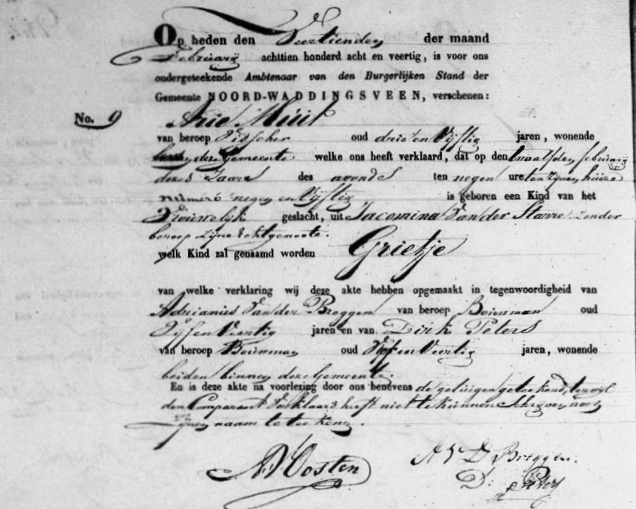 Op heden den Veertienden der maand
Februarij achttien honderd acht en veertig, is voor ons
ondergeteekende Ambtenaar van den Burgerlijken Stand der
Gemeente NOORD-WADDINGSVEEN, verschenen:
No. 9 Arie
van beroep Visscher oud drie en Vijftig jaren, wonende
binnen deze Gemeente welke ons heeft verklaard, dat op den twaalfden februarij
dezes Jaars des avonds ten negen ure ten zijnen huize
nummer negen en Vijftig is geboren een Kind van het
Vrouwelijk geslacht, uit Jacomina van der Starre zonder
beroep zijne Echtgenoote
welk Kind zal genaamd worden Grietje
van welke verklaring wij deze akte hebben opgemaakt in tegenwoordigheid van
Adrianus van der Breggen van beroep Bouwman oud
Vijf en Veertig jaren en van Dirk Peters
van beroep Bouwman oud Vijf en Veertig jaren, wonende
beiden binnen deze Gemeente.
En is deze akte na voorlezing door ons benevens de getuigen geteekend, terwijl
den Comparant Verklaard heeft niet te kunnen Schrijven noch
Zijnen naam te teekenen
Oosten A V D Breggen
D. Peters